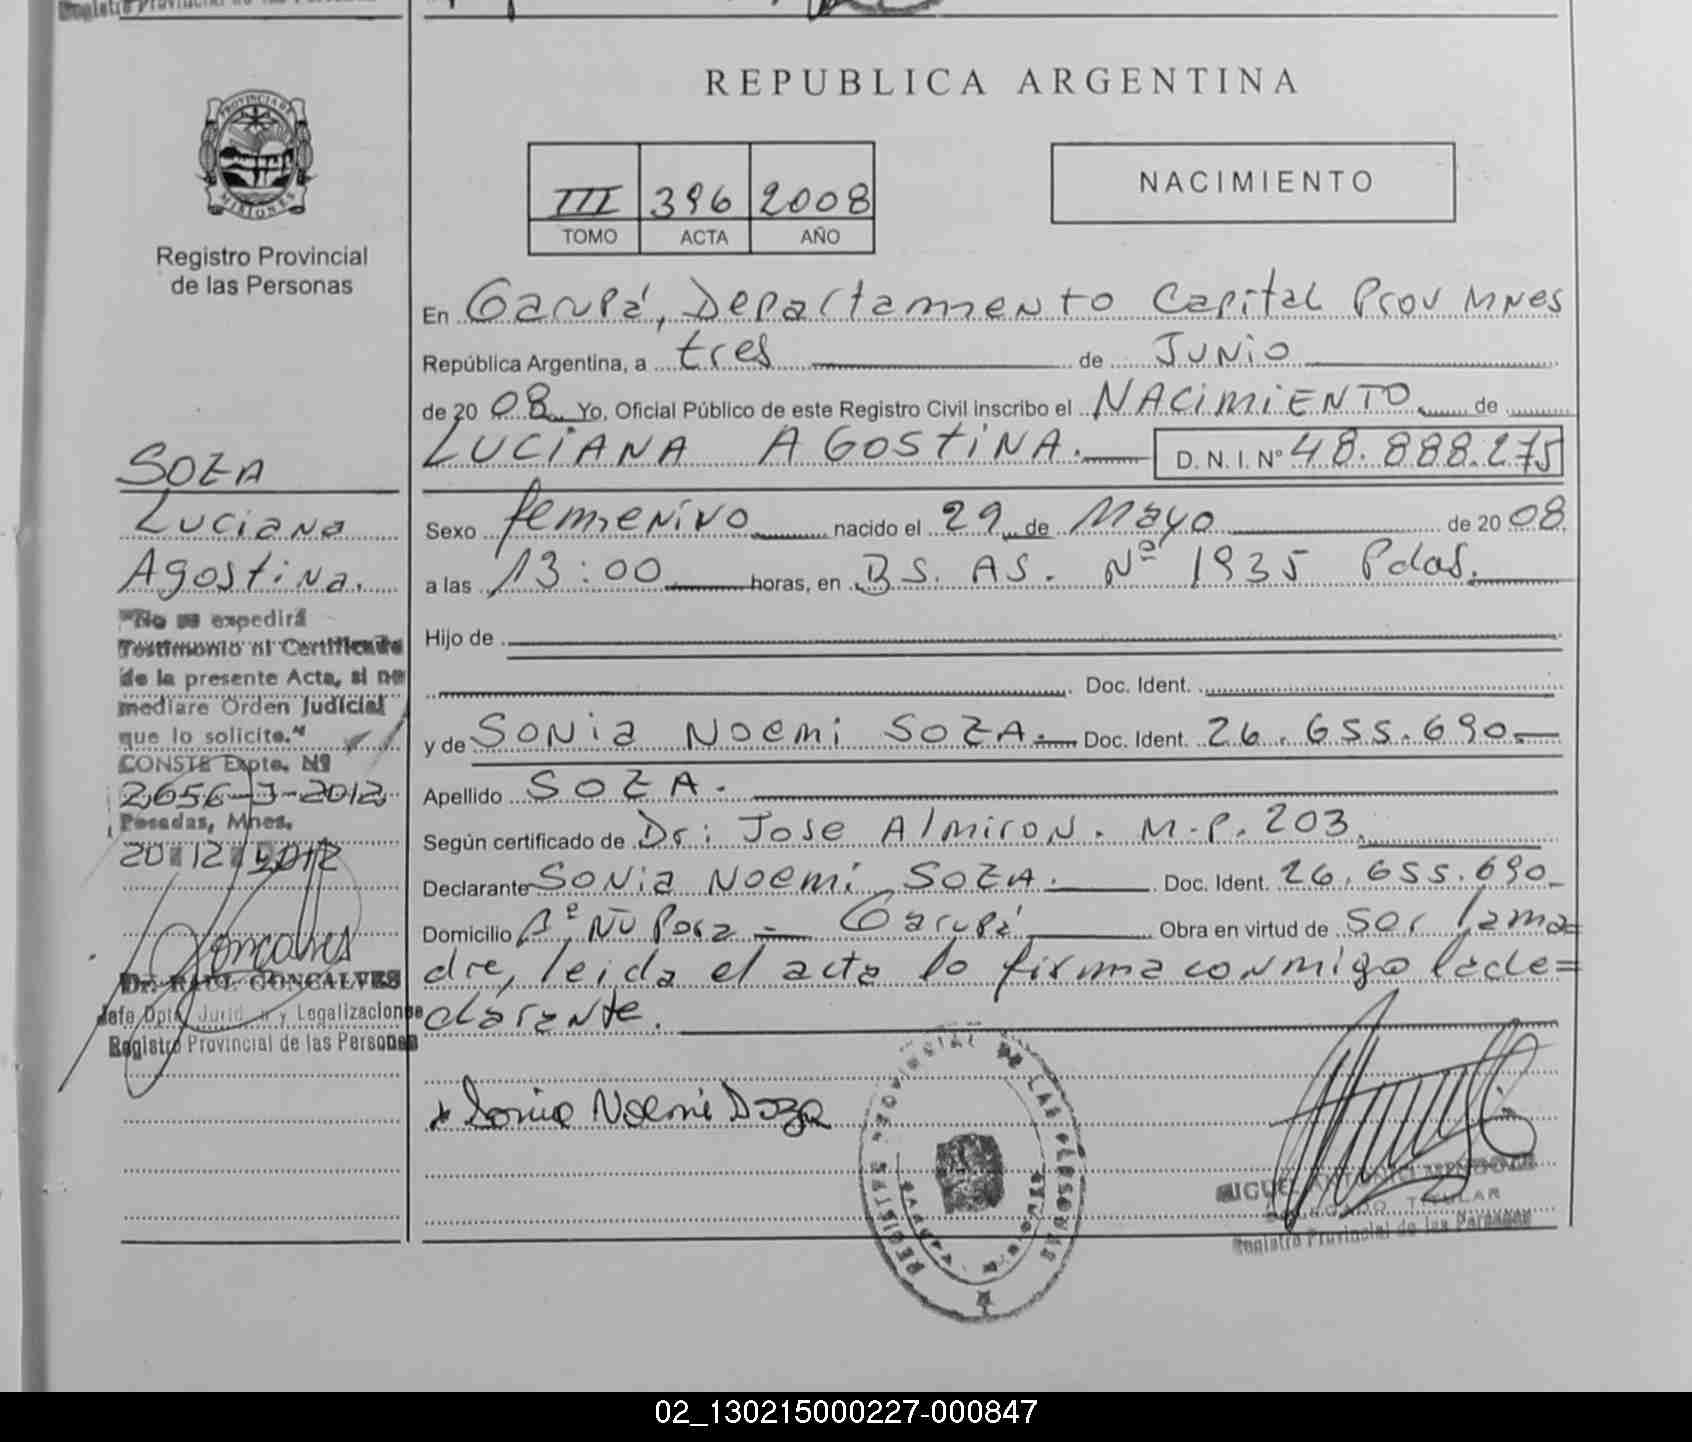 REPUBLICA ARGENTINA
PROVINCIA DE MISIONES
Registro Provincial
de las Personas
III 396 2008
TOMO ACTA AÑO
NACIMIENTO
En Garupá, Departamento Capital Prov Mnes
República Argentina, a tres de Junio
de 2008 Yo, Oficial Público de este Registro Civil inscribo el NACIMIENTO de
LUCIANA AGOSTINA. D. N. I. Nº 48.888.275
Sexo femenino nacido el 29 de Mayo de 2008
a las 13:00 horas, en BS. AS. Nº 1935 Pdas.
Hijo de
Doc. Ident.
y de SONia NOEMi SOZA. Doc. Ident. 26.655.690
Apellido SOZA.
Según certificado de Dr: Jose Almiron. M.P. 203.
Declarante SONia NOEMi SOZA. Doc. Ident. 26.655.690
Domicilio Aº Ñu Pora - Garupá Obra en virtud de ser la ma=
dre, leida el acta lo firma conmigo la de=
clarante.
Sonia Noemi Soza
REGISTRO PROVINCIAL DE LAS PERSONAS
MIGUEL ANTONIO MENDOZA
DELEGADO TITULAR
Registro Provincial de las Personas
SOZA
Luciana
Agostina.
"No se expedirá
Testimonio ni Certificado
de la presente Acta, si no
mediare Orden Judicial
que lo solicite."
CONSTE Expte. Nº
2656-J-2012
Posadas, Mnes.
20 12 2012
Goncalves
Dr. RAUL GONCALVES
Jefe Dpto. Jurídico y Legalizaciones
Registro Provincial de las Personas
02_130215000227-000847